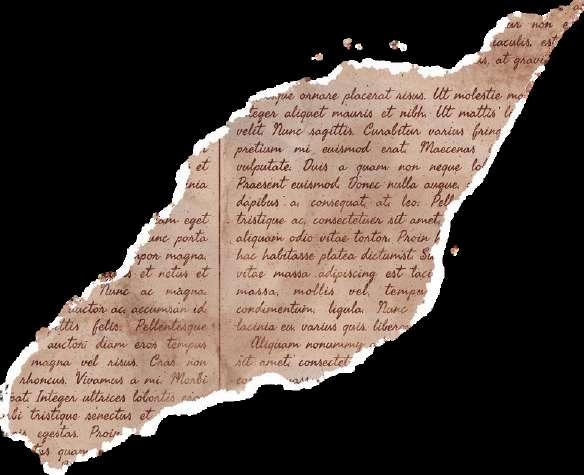 non e
iaculis, est
at gravi
ornare placerat risus. Ut molestie mo
teger aliquet mauris et nibh. Ut mattis
velit. Nunc sagittis. Curabitur varius fring
pretium mi euismod erat. Maecenas
vulputate. Duis a quam non neque lo
Praesent euismod. Donec nulla augue,
dapibus a, consequat at, leo. Pell
tristique ac, consectetuer sit amet,
aliquam odio vitae tortor. Proin
hac habitasse platea dictumst. Su
vitae massa adipiscing est lac
massa, mollis vel, tempu
condimentum, ligula. Nunc
lacinia eu, varius quis, libero
Aliquam nonummy
sit amet, consectet
et
nia
am eget
unc porta
por magna
s et netus et
Nunc ac magna
uctor ac, accumsan id,
ttis felis. Pellentesque
auctor, diam eros tempus
magna vel risus. Cras non
rhoncus. Vivamus a mi. Morbi
pat. Integer ultrices lobortis
rbi tristique senectus et
egestas. Proin
tus quam